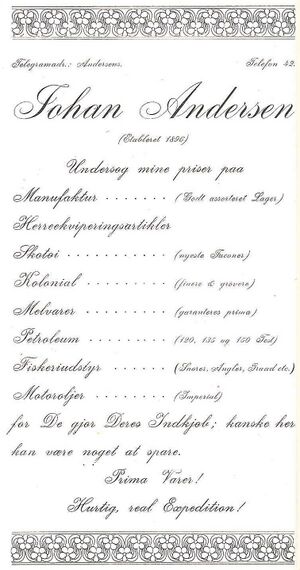 Telegramadr.: Andersens. Telefon 42.
Johan Andersen
(Etableret 1896)
Undersøg mine priser paa
Manufaktur . . . . . . . (Godt assorteret Lager.)
Herreekviperingsartikler
Skotøi . . . . . . . . . (nyeste Faconer)
Kolonial . . . . . . . . (finere & grovere)
Melvarer . . . . . . . . (garanteres prima)
Petroleum . . . . . . . (120, 135 og 150 Test)
Fiskeriudstyr . . . . . (Snører, Angler, Traad etc.)
Motoroljer . . . . . . . (Imperial)
før De gjør Deres Indkjøb; kanske her
kan være noget at spare.
Prima Varer!
Hurtig, real Expedition!